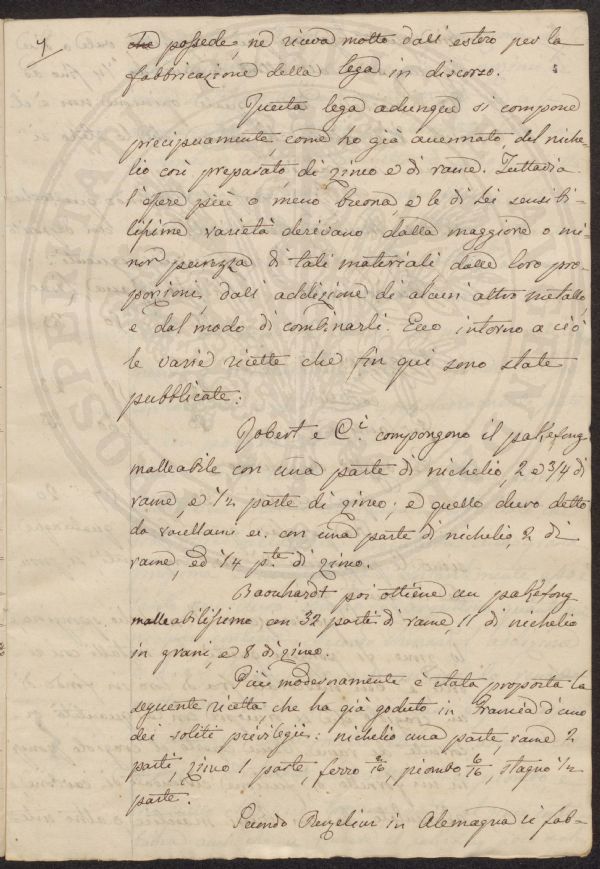 7
che possede, ne riceva molto dall' estero per la
fabbricazione della lega in discorso.
Questa lega adunque si compone
precipuamente, come ho già accennato, del niche-
lio così preparato, di zinco e di rame. Tuttavia
l'essere più o meno buona e le di lei sensibi-
lissime varietà derivano dalla maggiore o mi-
nor purezza di tali materiali, dalle loro pro-
porzioni, dall' addizione di alcun altro metallo,
e dal modo di combinarli. Ecco intorno a ciò
le varie ricette che fin qui sono state
pubblicate:
Jobert e C.i compongono il pakfong
malleabile con una parte di nichelio, 2 e 3/4 di
rame, e 1/2 parte di zinco; e quello duro detto
da vasellami ec. con una parte di nichelio, 2 di
rame, ed 1/4 p.te di zinco.
poi ottiene un pakfong
malleabilissimo con 32 parti di rame, 11 di nichelio
in grani, e 8 di zinco.
Più modernamente è stata proposta la
seguente ricetta, che ha già goduto in Francia d'uno
dei soliti privilegii: nichelio una parte, rame 2
parti, zinco 1 parte, ferro piombo stagno 1/2
parte.
Secondo Berzelius in Alemagna si fab-